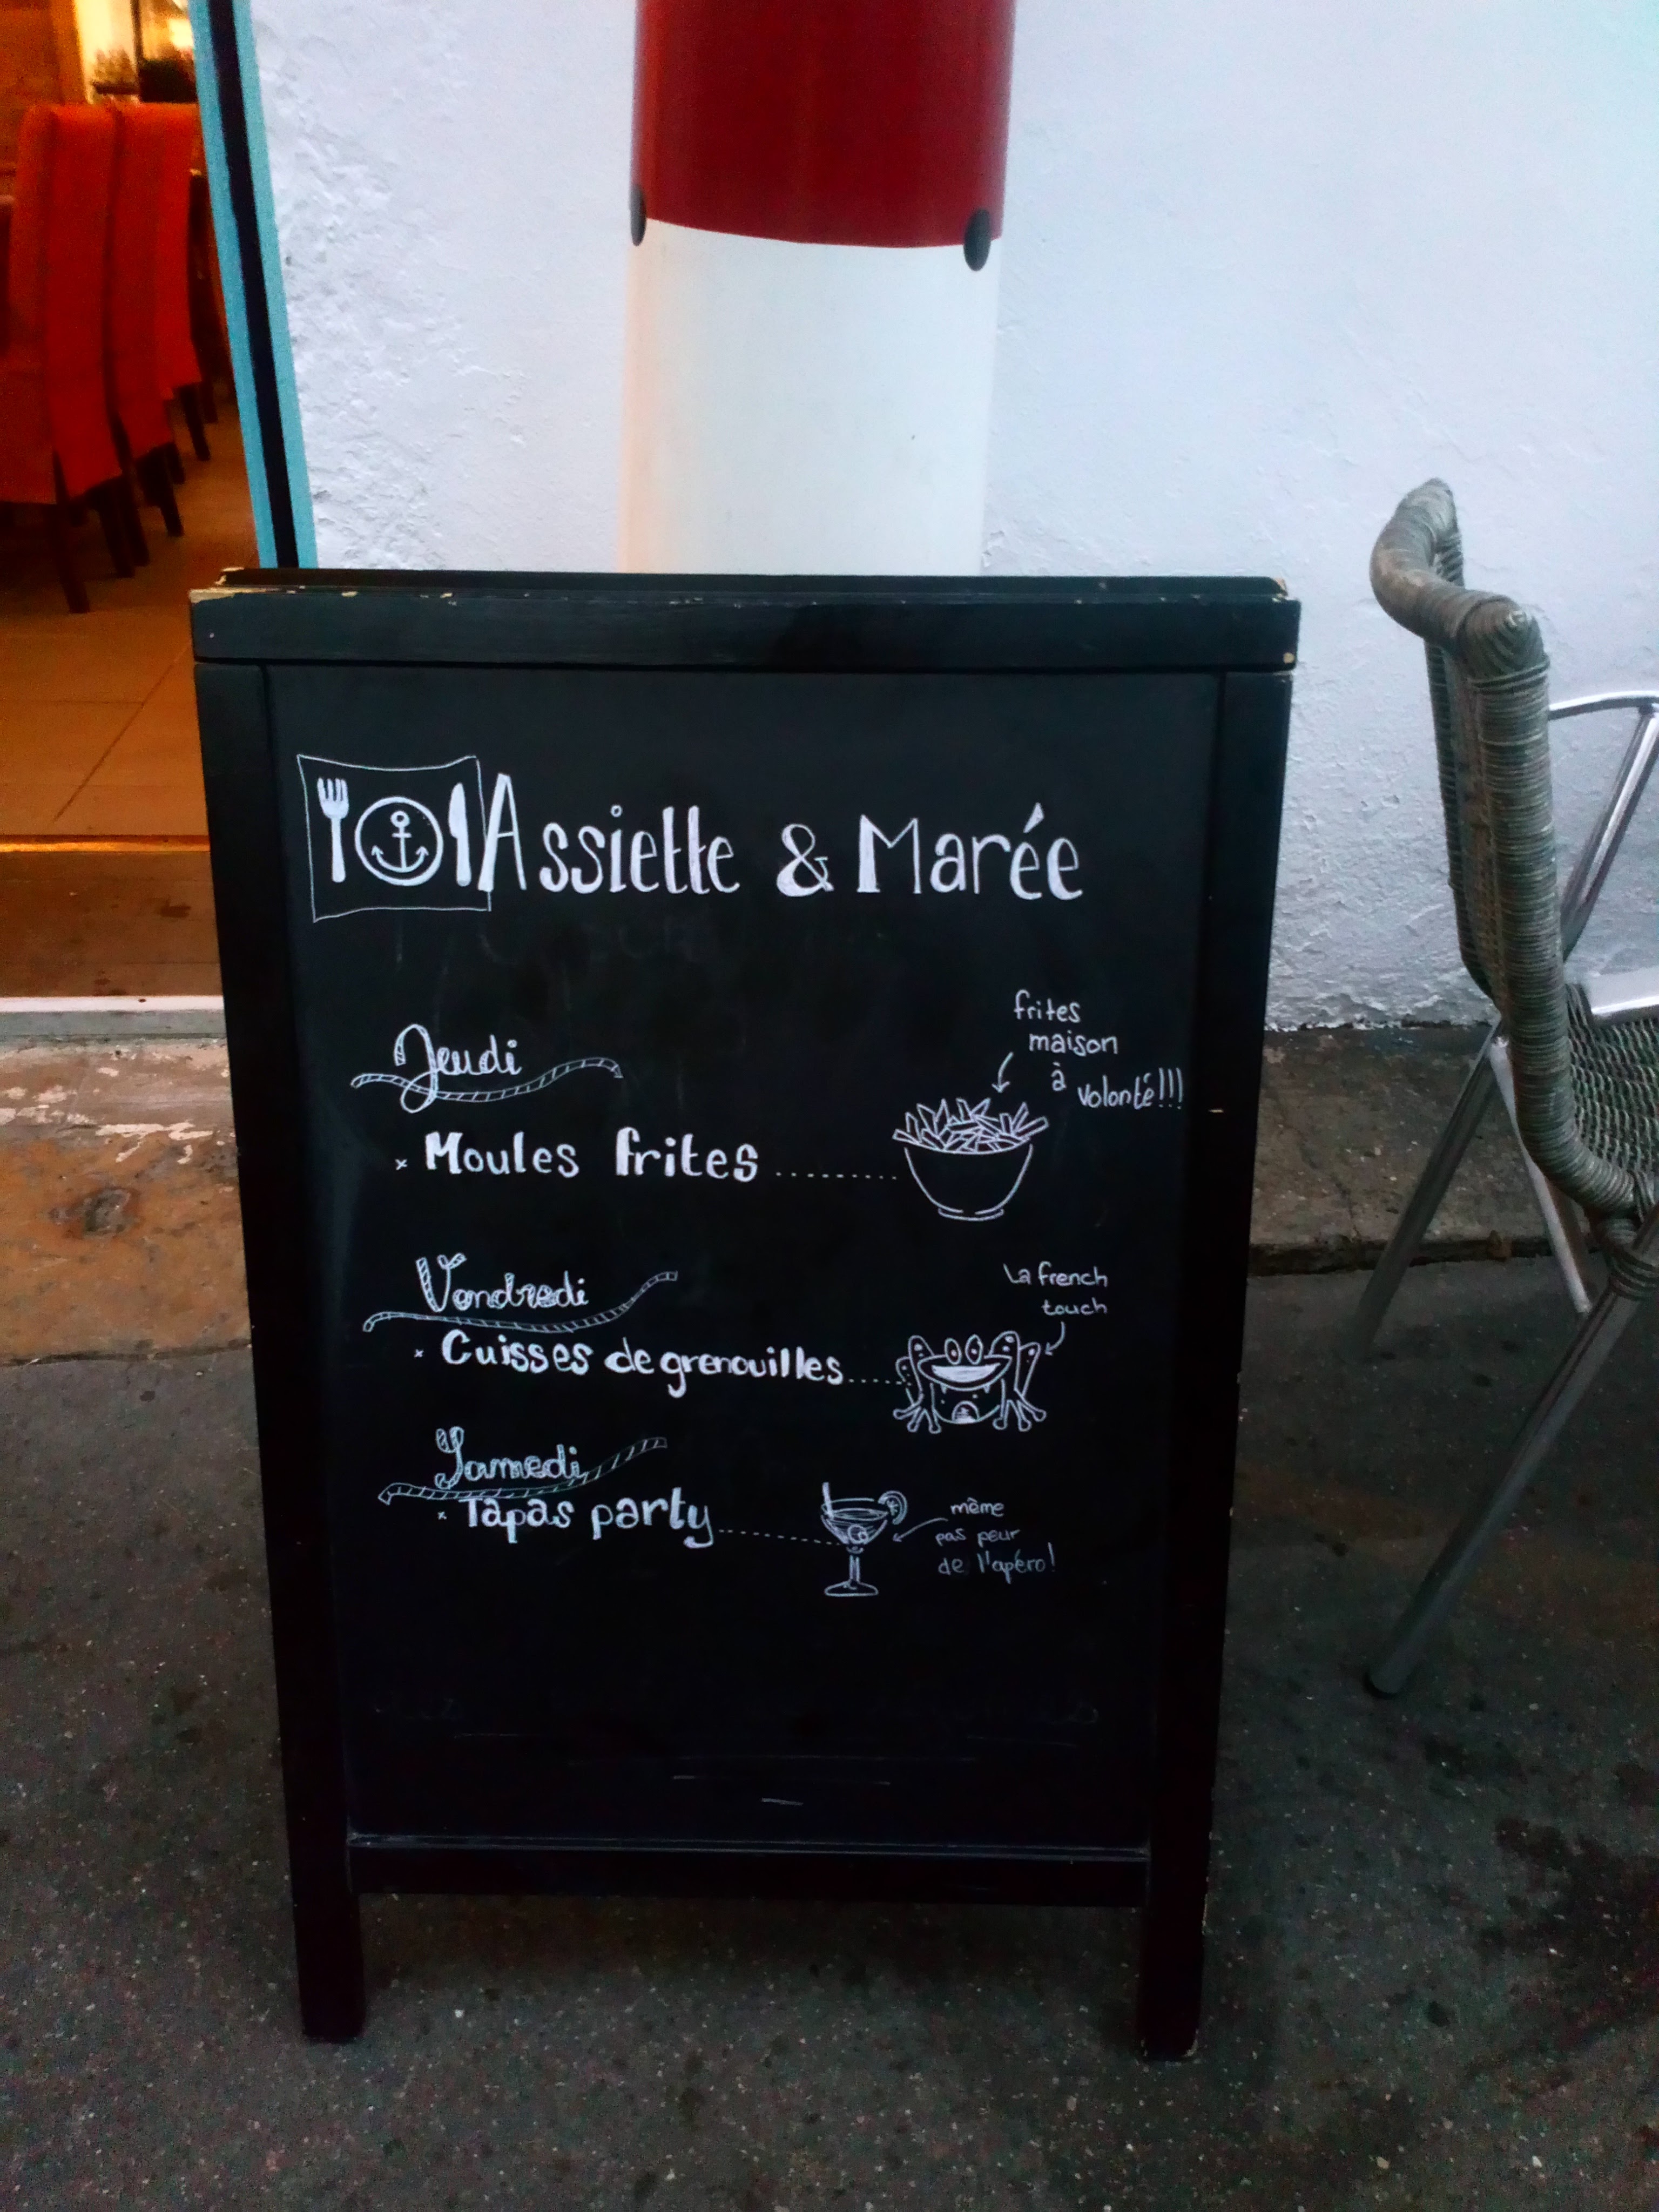 Assiette & Marée
Jeudi
frites
maison
à volonté!!!
x Moules frites
Vendredi
la french
touch
x Cuisses de grenouilles
Samedi
x Tapas party
même
pas peur
de l'apéro!